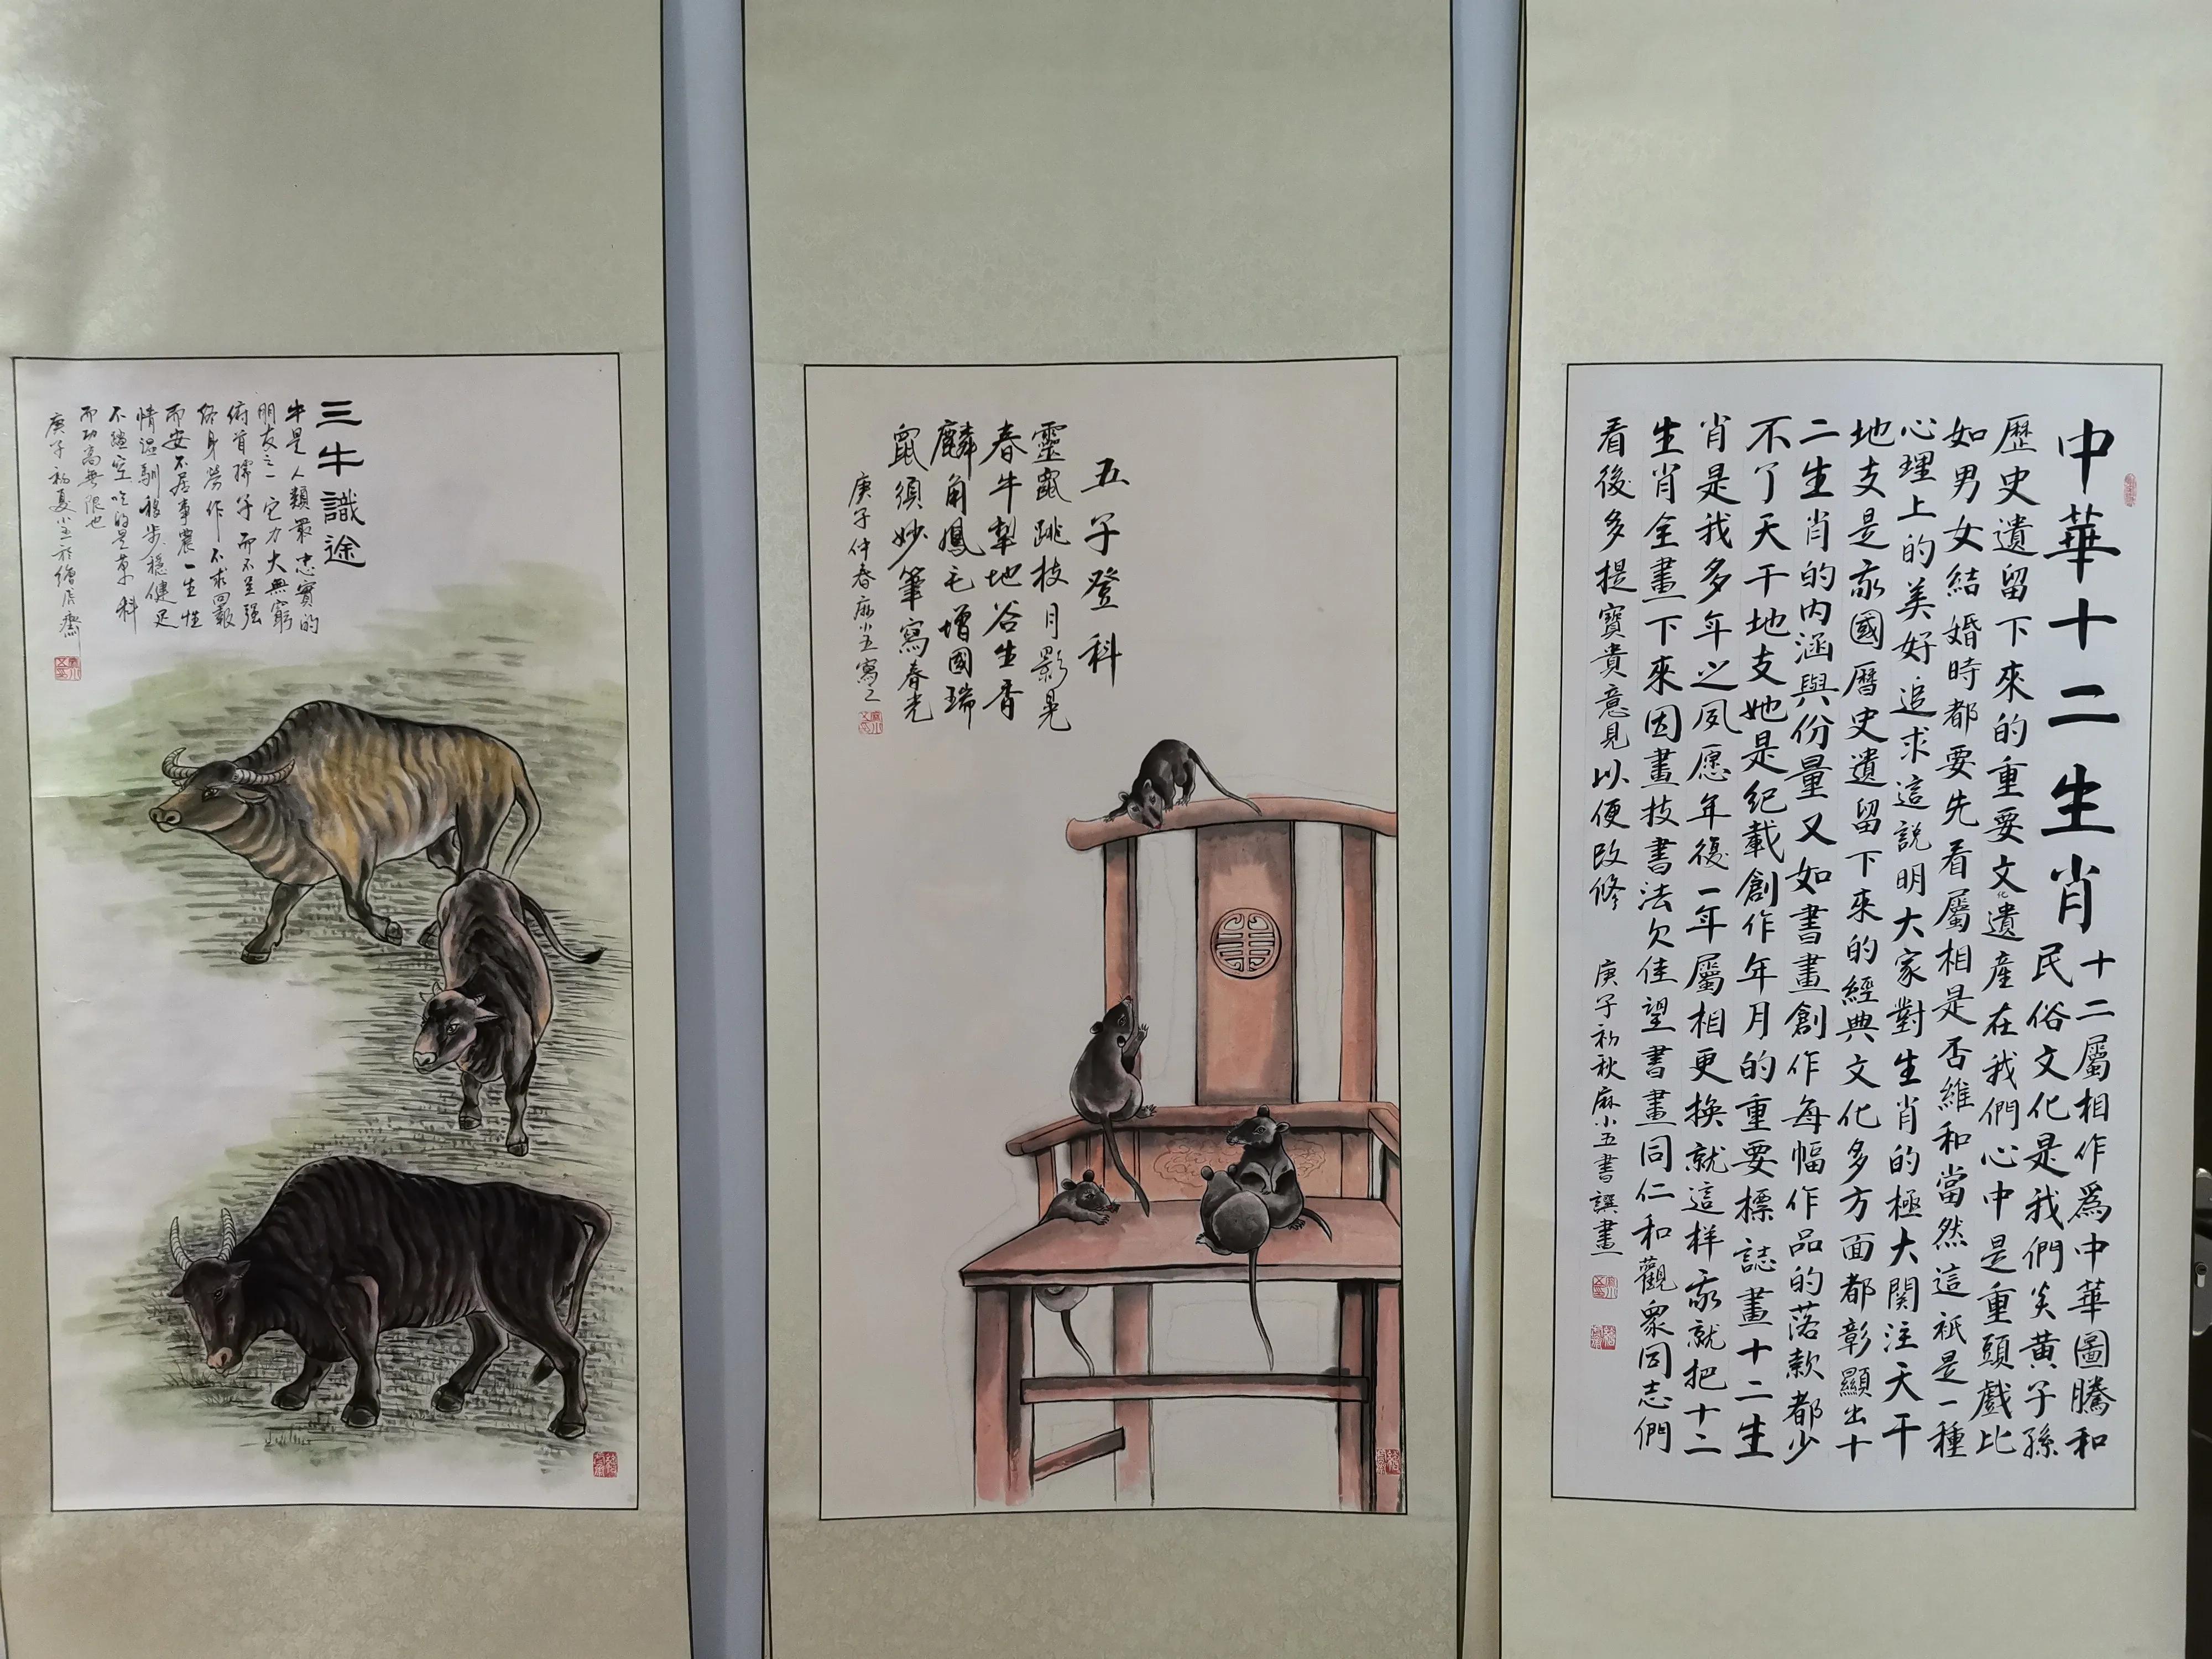 中華十二生肖
十二屬相作爲中華圖騰和
民俗文化是我們炎黃子孫
歷史遺留下來的重要文化遺産在我們心中是重頭戲比
如男女結婚時都要先看屬相是否維和當然這祇是一種
心理上的美好追求這説明大家對生肖的極大関注天干
地支是我國曆史遺留下來的經典文化多方面都彰顯出十
二生肖的内涵與份量又如書畫創作每幅作品的落款都少
不了天干地支她是紀載創作年月的重要標誌畫十二生
肖是我多年之夙愿年復一年屬相更换就這样我就把十二
生肖全畫下來因畫技書法欠佳望書畫同仁和觀衆同志們
看後多提寶貴意見以便改修
庚子初秋麻小五書譔畫
五子登科
靈鼠跳枝月影晃
春牛犁地谷生香
麟角鳳毛增國瑞
鼠須妙筆寫春光
庚子仲春麻小五寫之
三牛識途
牛是人類最忠實的
朋友之一它力大無窮
俯首孺子而不呈强
終身勞作不求回報
而安不居事農一生性
情温馴移步穩健足
不踏空吃的是草料
而功高無限也